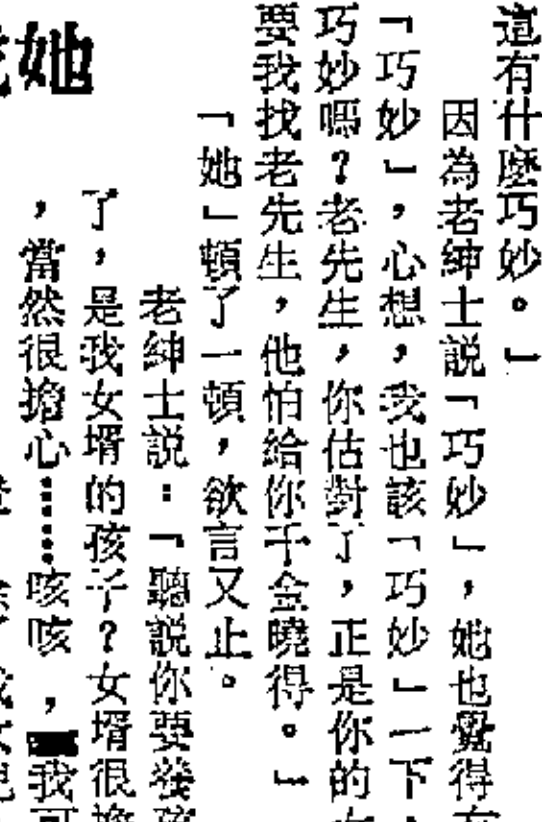 這有什麼巧妙。」
因為老紳士説「巧妙」，她也覺得
「巧妙」，心想，我也該「巧妙」一下，
巧妙嗎？老先生，你估對了，正是你的
要我找老先生，他怕給你千金曉得。」
「她」頓了一頓，欲言又止。
老紳士説：「聽説你要養
了，是我女壻的孩子？女壻很擔
，當然很擔心……咳咳，我可
她